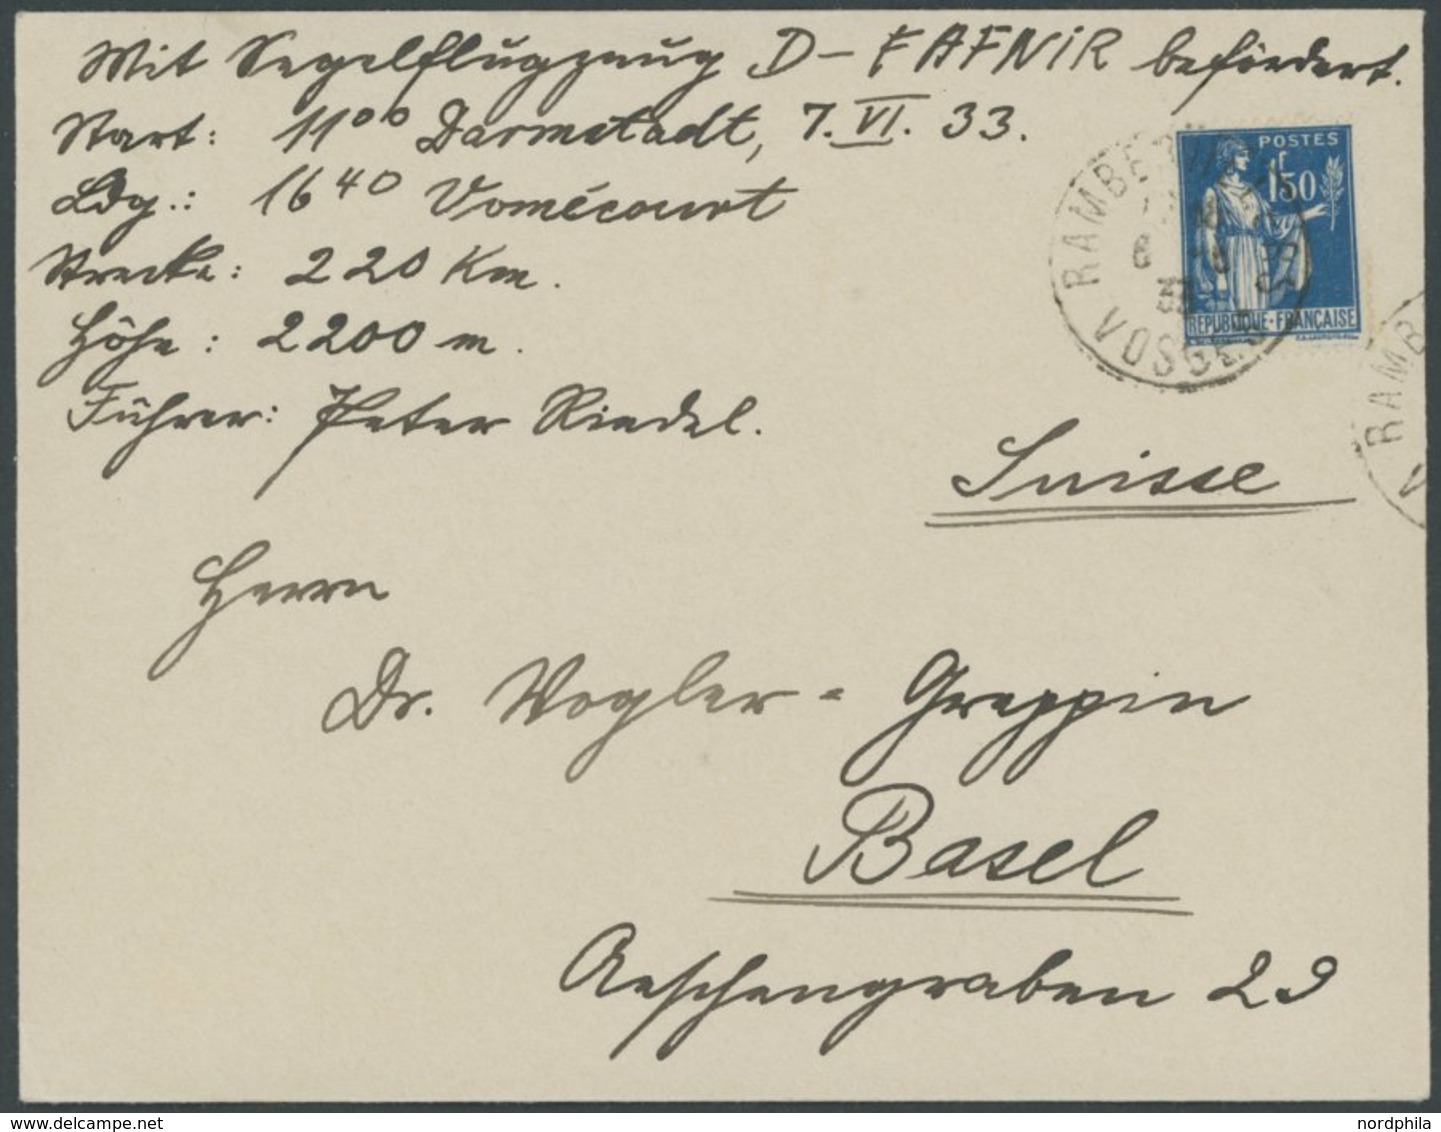 Mit Segelflugzeug D-FAFNIR befördert.
Start: 11⁰⁰ Darmstadt, 7.VI.33.
Ldg.: 16⁴⁰ Vomécourt
Strecke: 220 Km.
Höhe: 2200 m.
Führer: Peter Riedel.
POSTES
1F50
REPUBLIQUE-FRANÇAISE
VOSGES
RAMB
V
Suisse
Herrn
Dr. Vogler-Greppin
Basel
Aeschengraben 29
nordphila